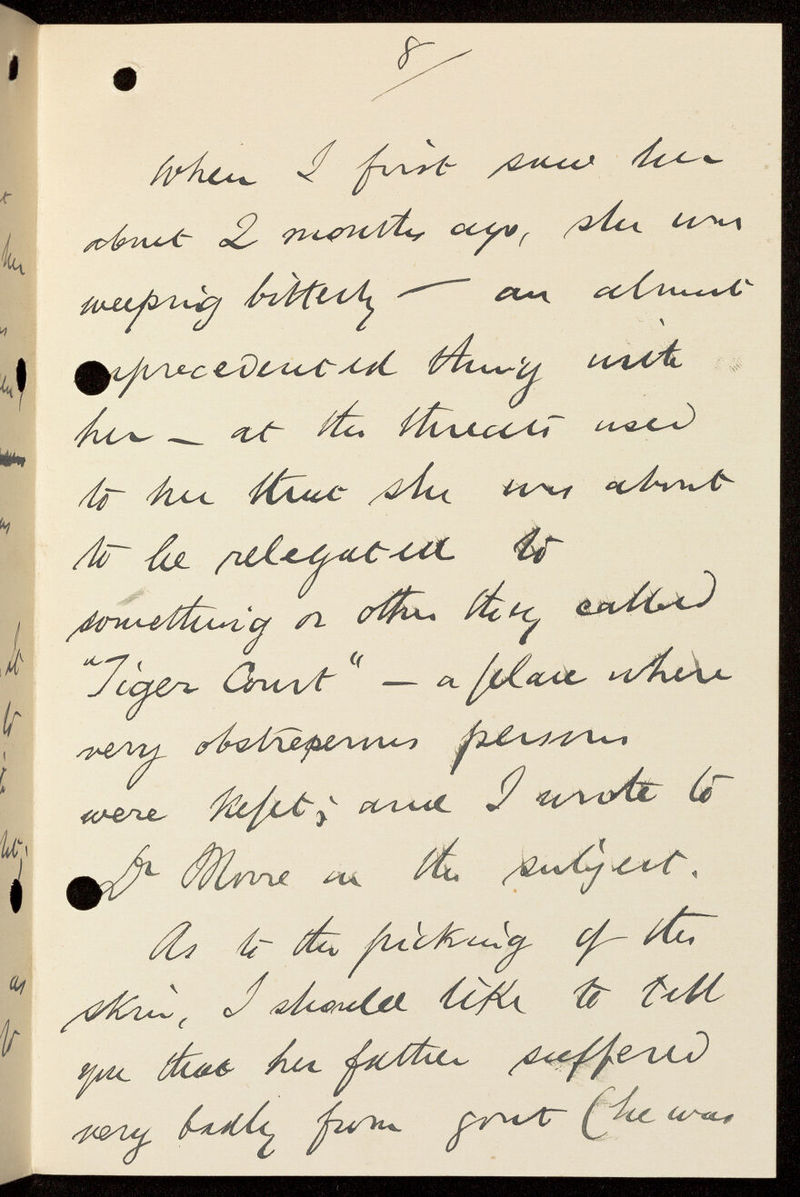 8/
When I first saw her
about 2 months ago, she was
weeping bitterly — an almost
unprecedented thing with
her — at the threats used
to her that she was about
to be relegated to
something or other they called
"Tiger Court" — a place where
very obstreperous persons
were kept; and I wrote to
Dr Moore on the subject.
As to the picking of the
skin, I should like to tell
you that her father suffered
very badly from gout (he was